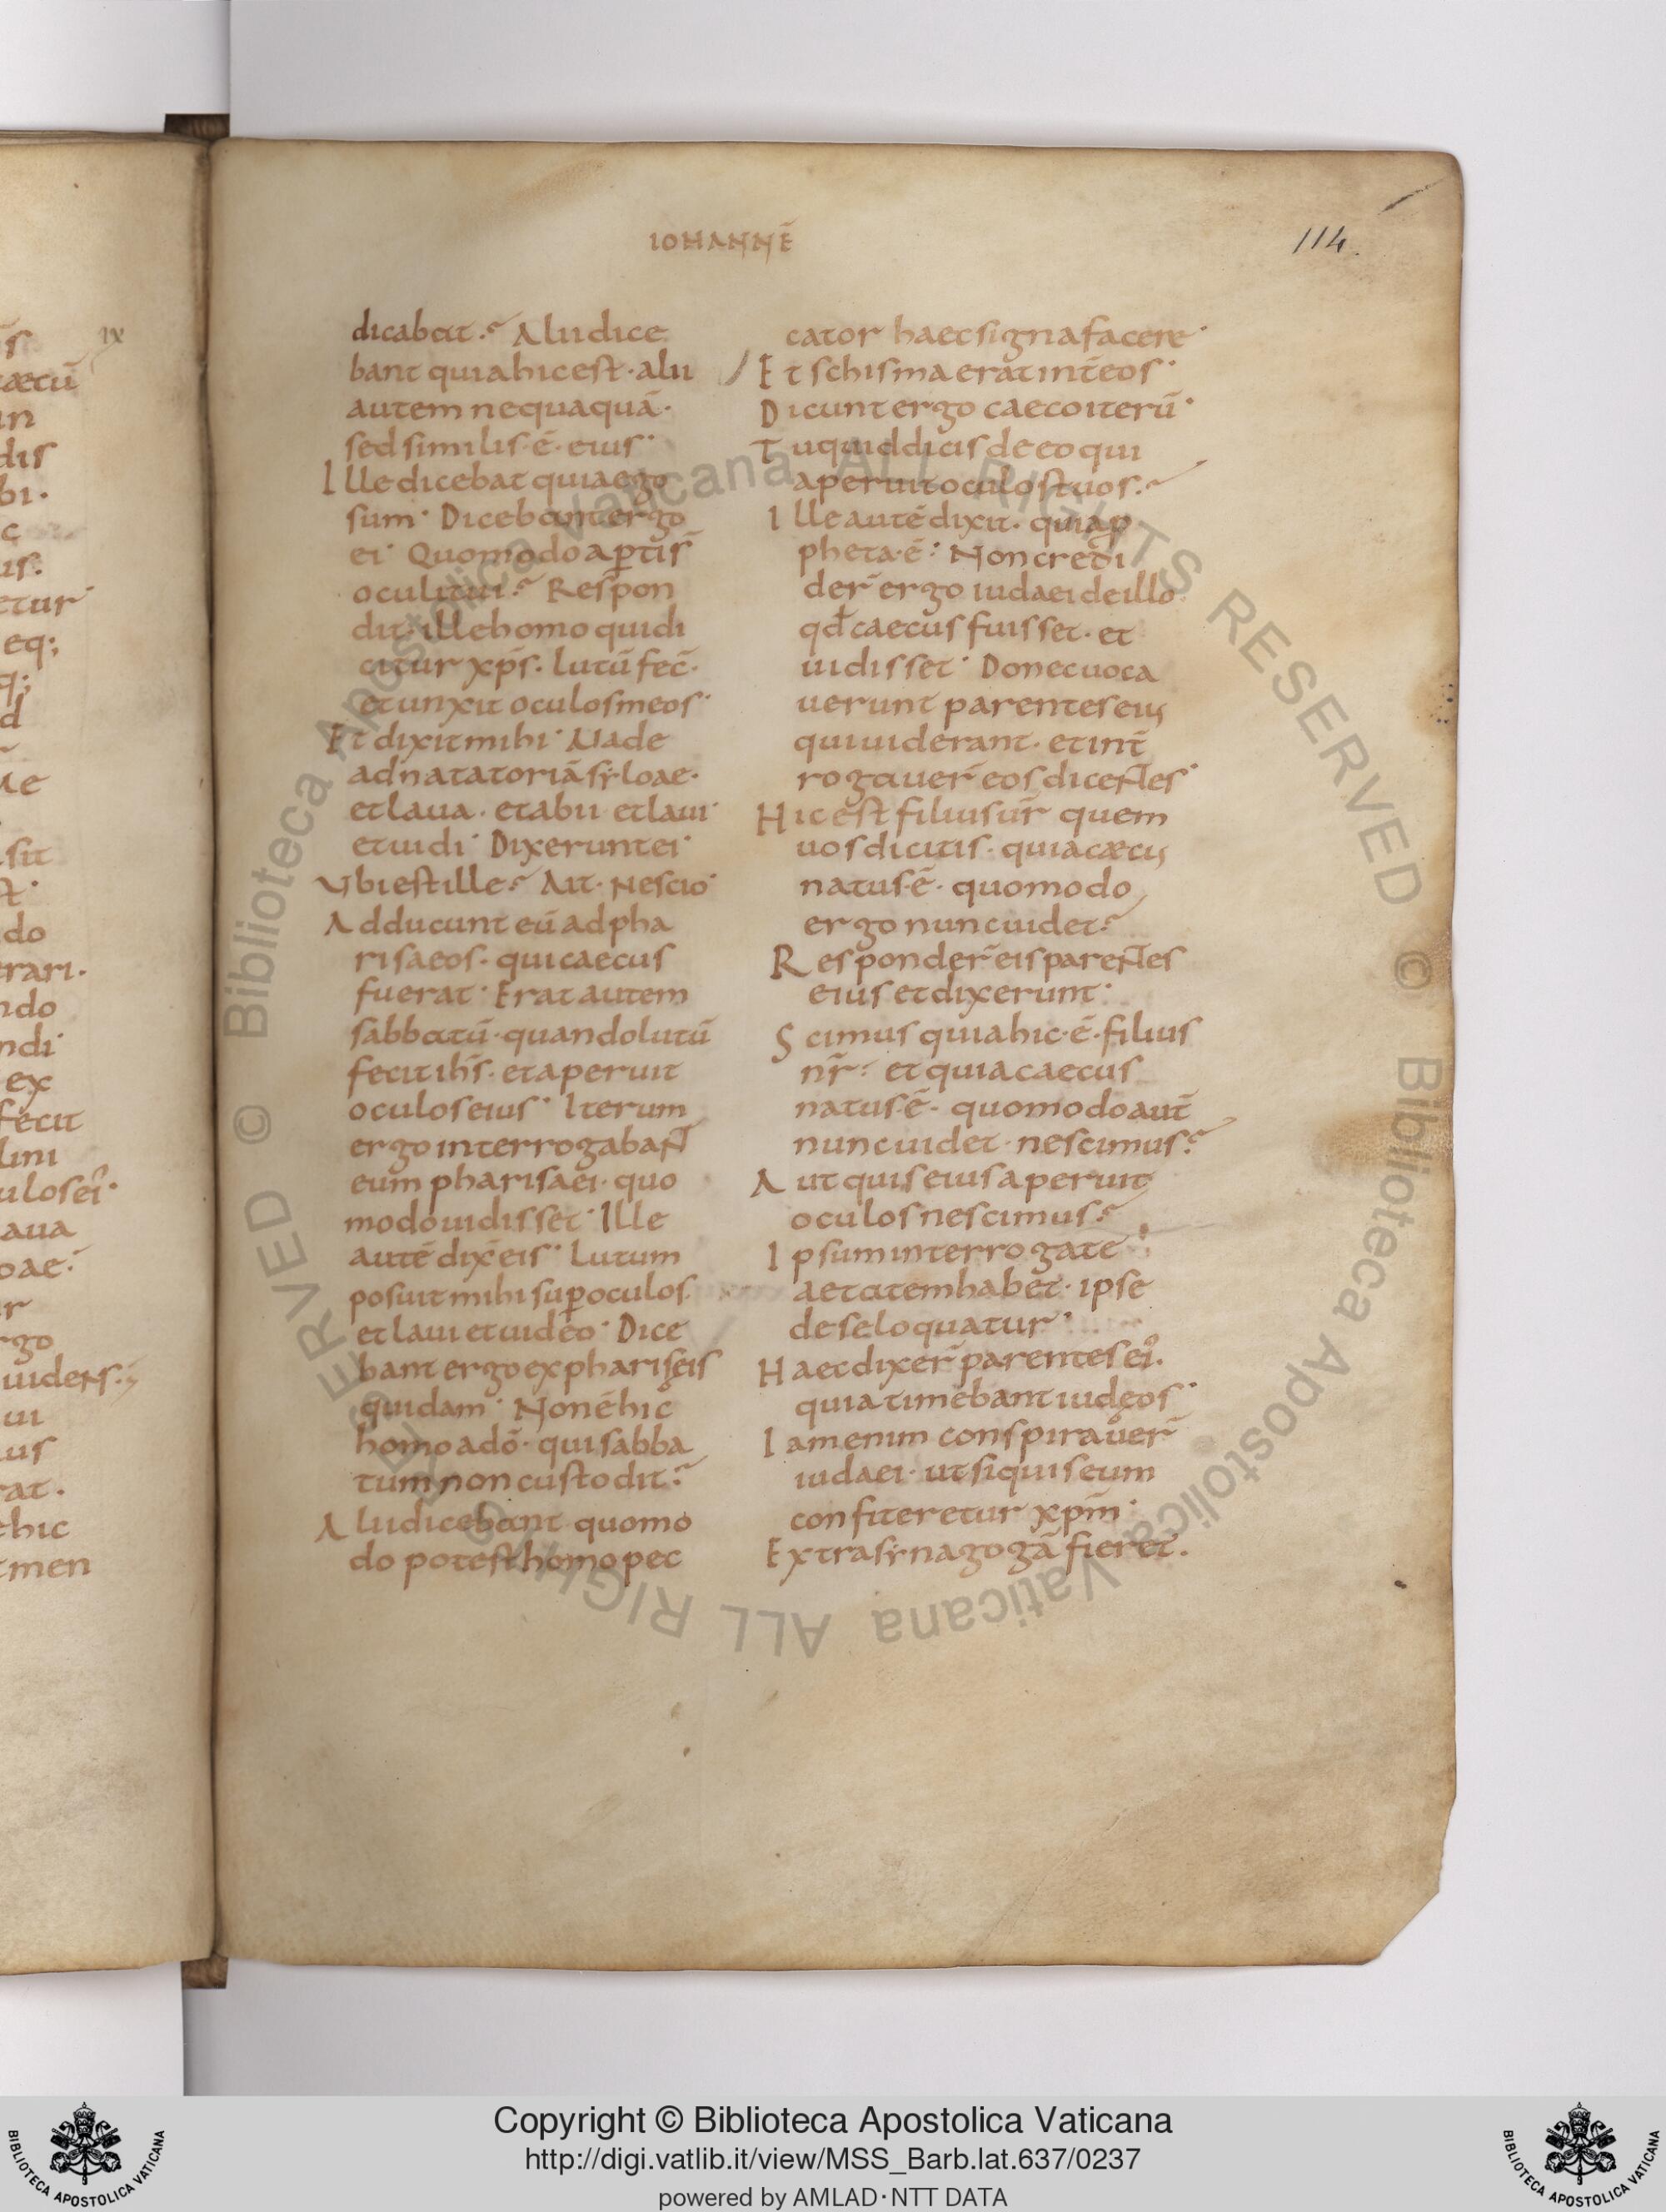 IOHANNĒ
114
dicabat.? Alii dice
bant quia hic est · alii
autem nequaquā ·
sed similis · ē · eius ·
Ille dicebat quia ego
sum · Dicebant ergo
ei · Quomodo aꝑti s̄
oculi tui.? Respon
dit · ille homo qui di
citur xp̄s · lutū fec̄ ·
et unxit oculos meos ·
Et dixit mihi · Uade
ad natatoriā syloae ·
et laua · et abii et laui ·
et uidi · Dixerunt ei ·
Vbi est ille.? Ait · Nescio ·
Adducunt eū ad pha
risaeos · qui caecus
fuerat · Erat autem
sabbatū · quando lutū
fecit ih̄s · et aperuit
oculos eius · Iterum
ergo interrogabant
eum pharisaei · quo
modo uidisset · Ille
autē dix̄ eis · Lutum
posuit mihi suꝑ oculos
et laui et uideo · Dice
bant ergo ex phariseis
quidam · Non ē hic
homo a dō · qui sabba
tum non custodit.?
Alii dicebant quomo
do potest homo pec
cator haec signa facere ·
Et schisma erat int̄ eos ·
Dicunt ergo caeco iterū ·
Tu quid dicis de eo qui
aperuit oculos tuos.?
Ille autē dixit · quia ꝓ
pheta · ē : Non credi
der̄ ergo iudaei de illo
qđ caecus fuisset · et
uidisset · Donec uoca
uerunt parentes eius
qui uiderant · et int̄
rogauer̄ eos dicentes ·
Hic est filius ur̄ quem
uos dicitis · quia cæcus
natus · ē · quomodo
ergo nunc uidet.?
Responder̄ eis parentes
eius et dixerunt ·
Scimus quia hic · ē · filius
nr̄ : et quia caecus
natus · ē · quomodo aut̄
nunc uidet · nescimus.?
Aut quis eius aperuit
oculos nescimus.?
Ipsum interrogate
aetatem habet · ipse
de se loquatur ·
Haec dixer̄ parentes ei᾽ ·
quia timebant iudęos ·
Iam enim conspirauer̄
iudaei · ut si quis eum
confiteretur xpm̄ ·
Extra synagogā fieret ·
Copyright © Biblioteca Apostolica Vaticana
http://digi.vatlib.it/view/MSS_Barb.lat.637/0237
powered by AMLAD·NTT DATA
BIBLIOTECA APOSTOLICA VATICANA
BIBLIOTECA APOSTOLICA VATICANA
© Biblioteca Apostolica Vaticana ALL RIGHTS RESERVED
© Biblioteca Apostolica Vaticana ALL RIGHTS RESERVED